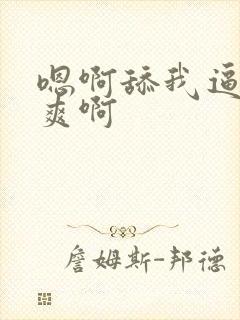 嗯啊舔我逼
爽啊
詹姆斯-邦德